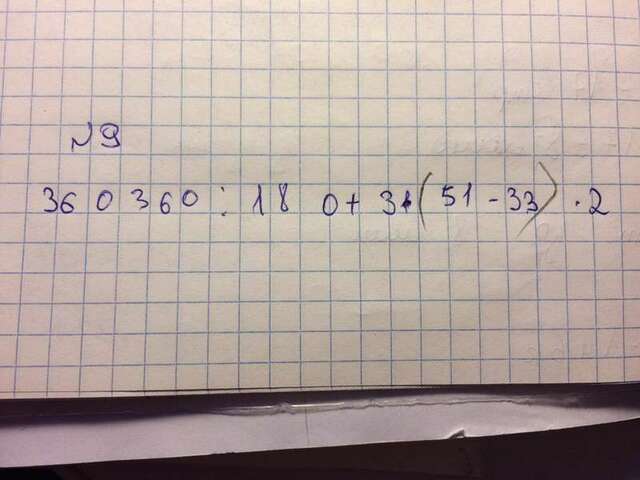 №9
360360 : 180 + 31(51 - 33) · 2